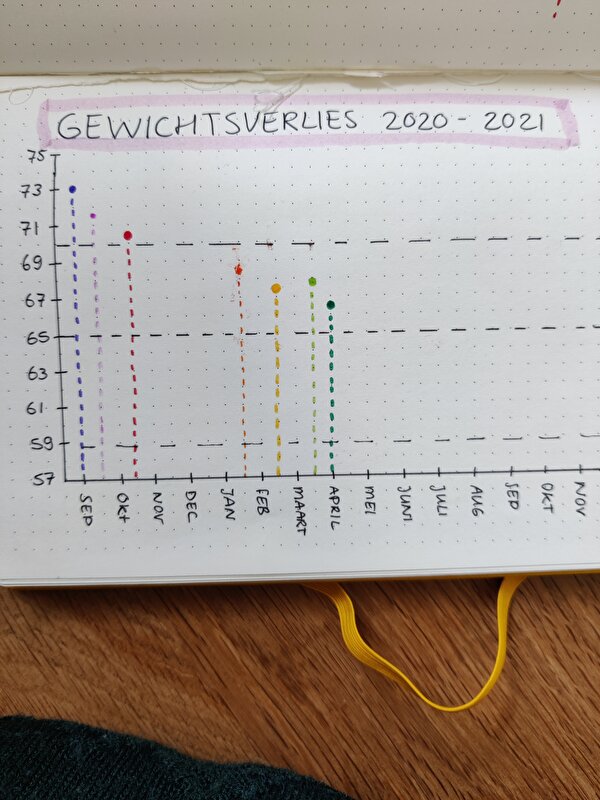 GEWICHTSVERLIES 2020 - 2021
75
73
71
69
67
65
63
61
59
57
SEP OKT NOV DEC JAN FEB MAART APRIL MEI JUNI JULI AUG SEP OKT NOV